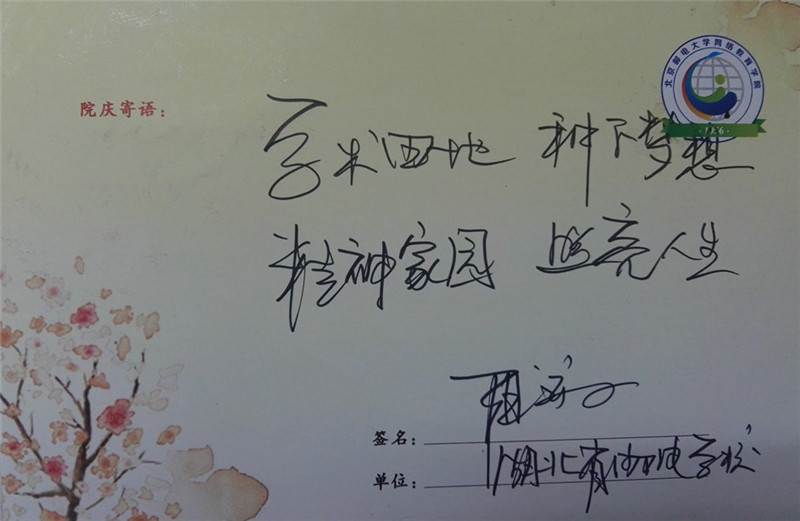 北京邮电大学网络教育学院
院庆寄语：
学术田地 种下梦想
精神家园 照亮人生
签名：
单位：湖北省邮电学校